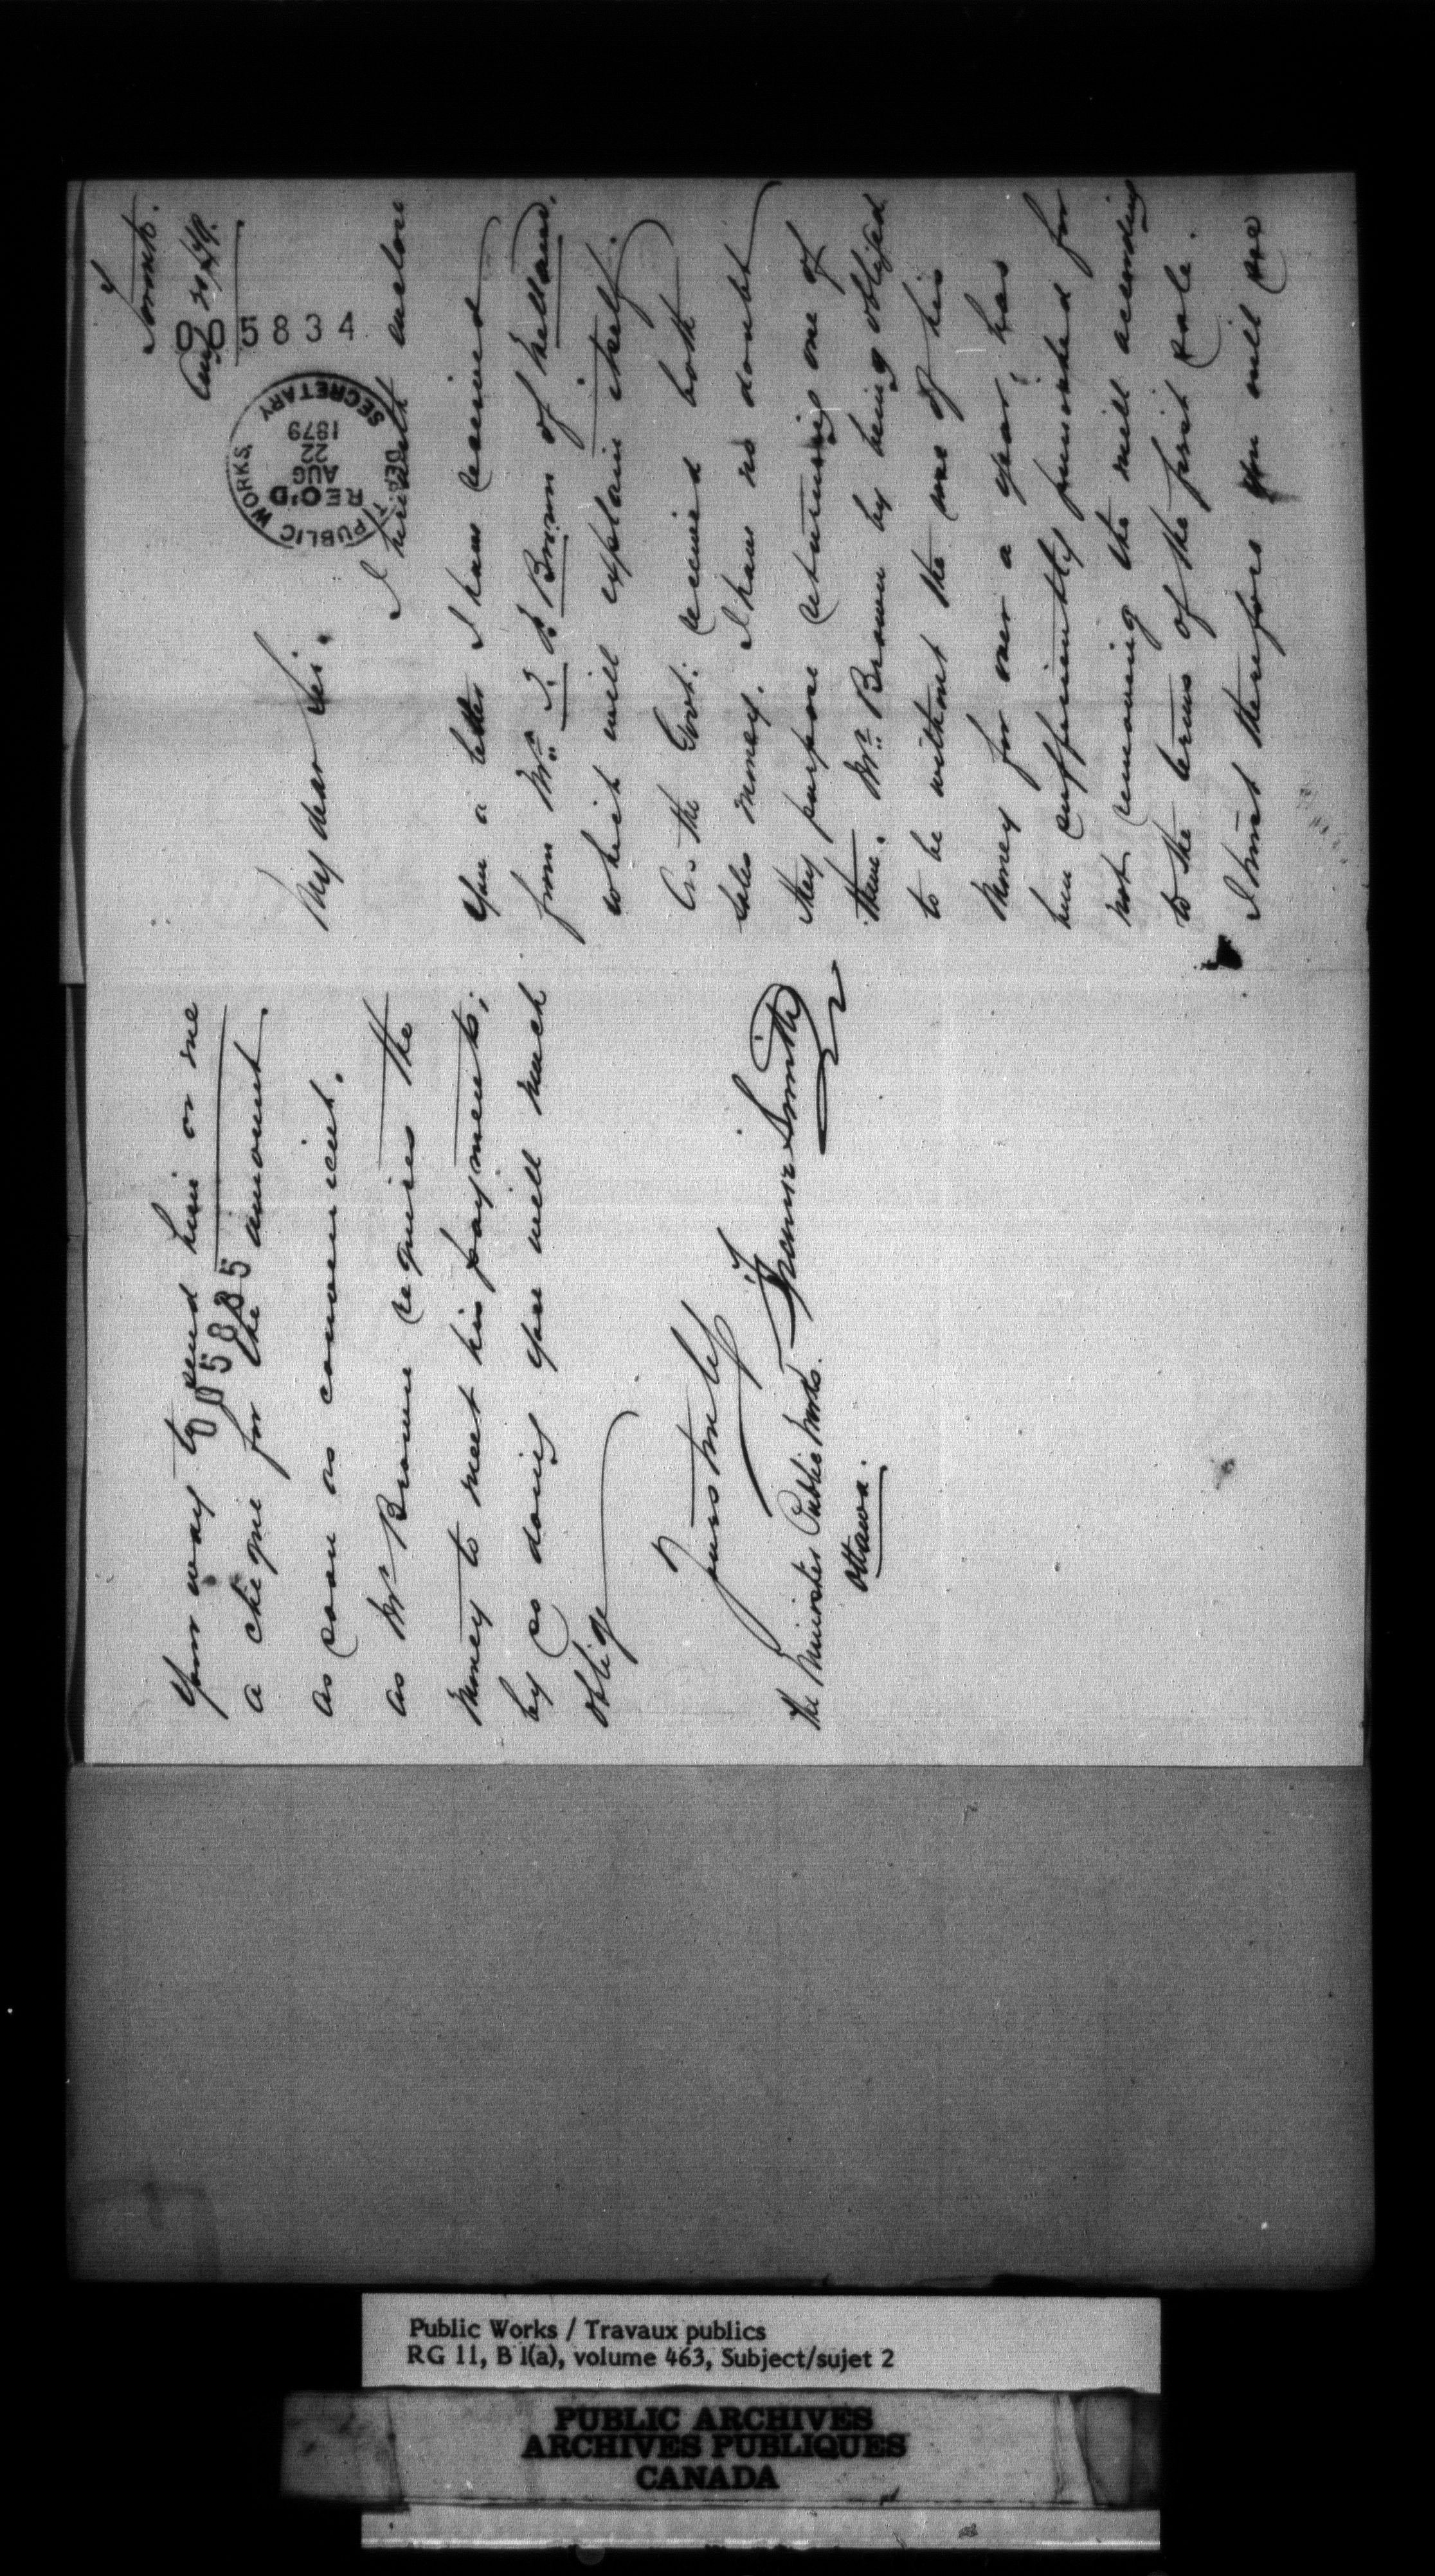 Toronto.
Aug 20/79.
005834
PUBLIC WORKS, DEP'T.
REC'D
AUG
22
1879
SECRETARY
My dear Sir.
I herewith enclose
you a letter I have received
from Mr. T. B. Brown of Welland,
which will explain itself.
As the Govt. received both
sales money. I have no doubt
they purpose returning one of
them. Mr. Brown by being obliged
to be without the use of his
money for over a year, has
been sufficiently punished for
not removing the mill according
to the terms of the first sale.
I trust therefore you will see
your way to send him or me
005835
a cheque for the amount
as soon as convenient.
as Mr Brown requires the
money to meet his payments;
by so doing you will much
oblige
Yours truly
Frank Smith
The Minister Public Works.
Ottawa.
Public Works / Travaux publics
RG 11, B 1(a), volume 463, Subject/sujet 2
PUBLIC ARCHIVES
ARCHIVES PUBLIQUES
CANADA